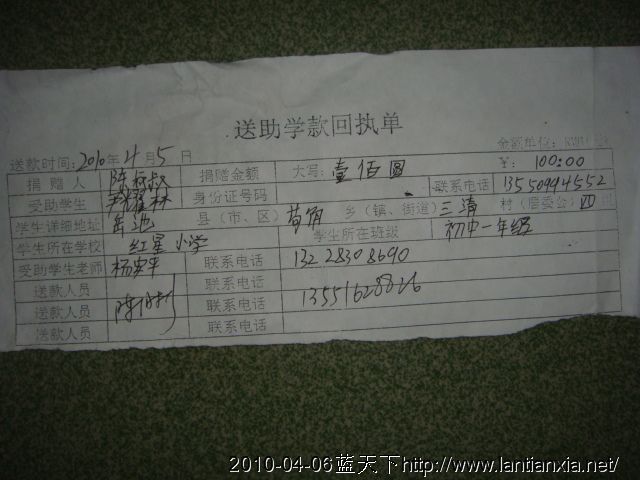 送助学款回执单
送款时间:2010年4月5日 金额单位:
捐赠人 陈 捐赠金额 大写:壹佰圆 ¥: 100:00
受助学生 身份证号码 联系电话 13550994552
学生详细地址 岳池 县(市、区) 乡(镇、街道) 三清 村(居委会) 四
学生所在学校 红星小学 学生所在班级 初中一年级
受助学生老师 杨 联系电话 13228308690
送款人员 联系电话 13551628826
送款人员 联系电话
送款人员 联系电话
2010-04-06蓝天下http://www.lantianxia.net/